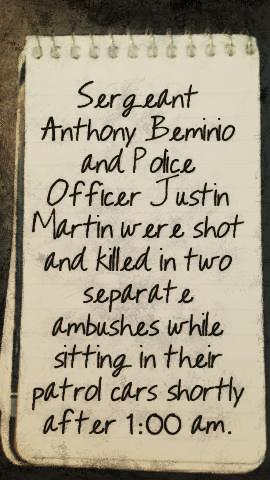 Sergeant
Anthony Beminio
and Police
Officer Justin
Martin were shot
and killed in two
separate
ambushes while
sitting in their
patrol cars shortly
after 1:00 am.